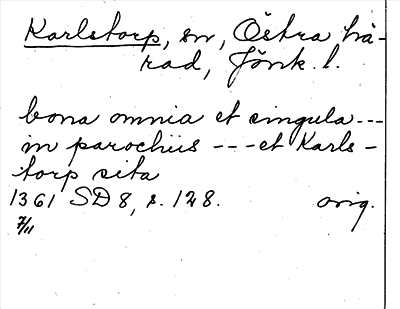 Karlstorp, sn, Östra hä-
rad, Jönk. l.
bona omnia et singula ---
in parochiis --- et Karls-
torp sita
1361 SD 8, s. 128. orig.
7/11